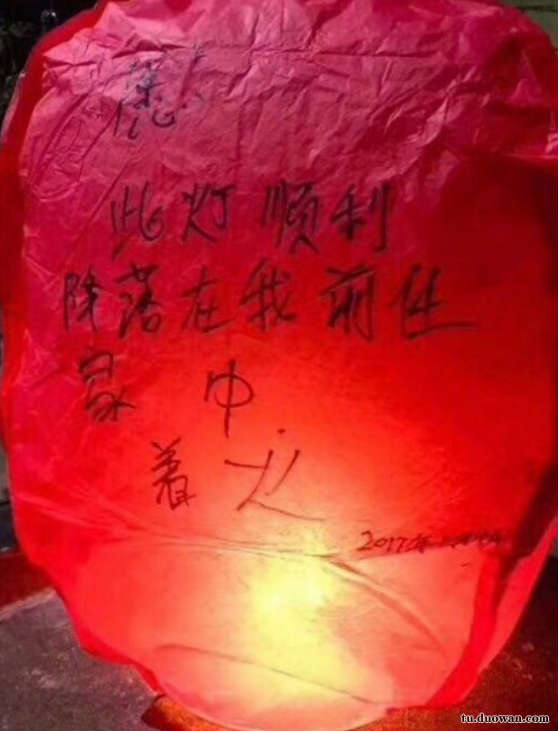 此灯顺利
降落在我前任
家中
着火
2017年
tu.duowan.com